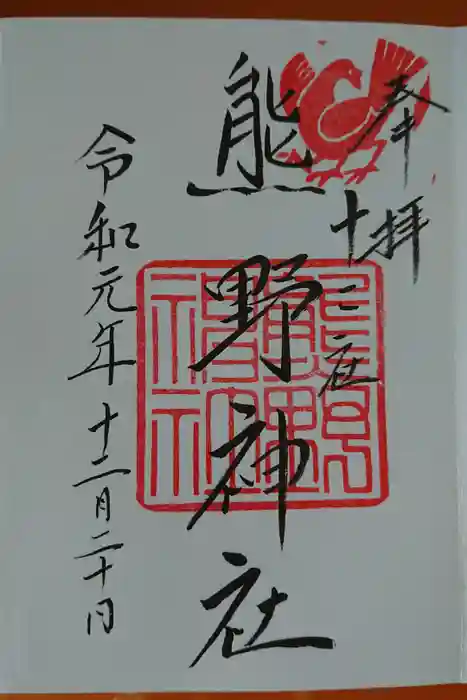 奉拝
十二社
熊野神社
令和元年十二月二十日
熊野神社